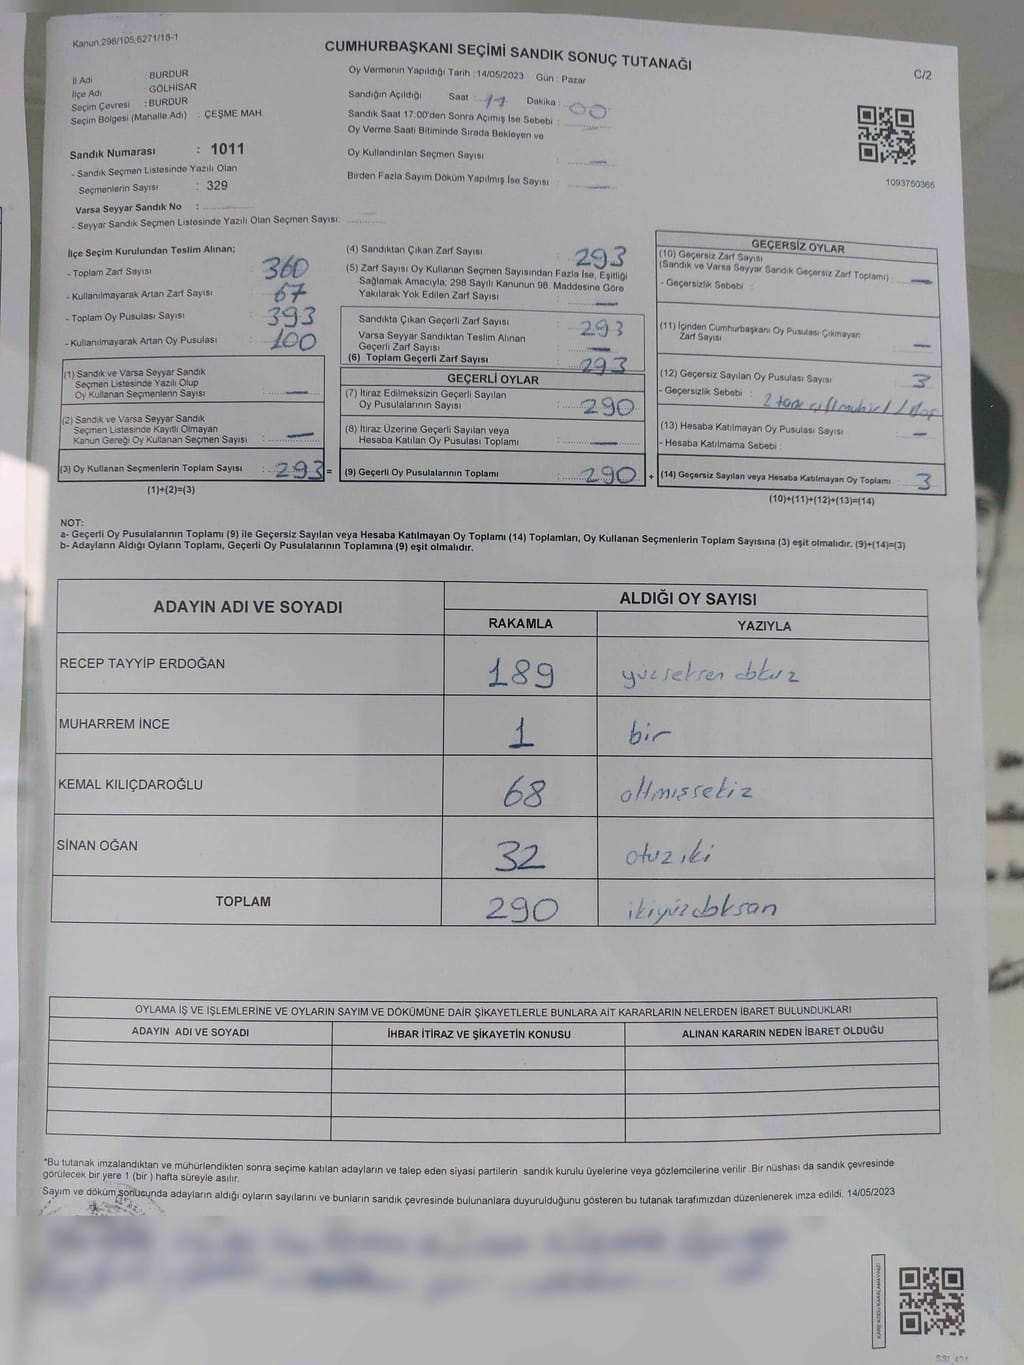 Kanun 298/105,6271/18-1
CUMHURBAŞKANI SEÇİMİ SANDIK SONUÇ TUTANAĞI
C/2
İl Adı : BURDUR
İlçe Adı : GÖLHİSAR
Seçim Çevresi : BURDUR
Seçim Bölgesi (Mahalle Adı) : ÇEŞME MAH.
Oy Vermenin Yapıldığı Tarih : 14/05/2023 Gün : Pazar
Sandığın Açıldığı Saat : Dakika : 00
Sandık Saat 17:00'den Sonra Açımış İse Sebebi :
Oy Verme Saati Bitiminde Sırada Bekleyen ve
Oy Kullandırılan Seçmen Sayısı : —
Birden Fazla Sayım Döküm Yapılmış İse Sayısı : —
1093750365
Sandık Numarası : 1011
- Sandık Seçmen Listesinde Yazılı Olan
Seçmenlerin Sayısı : 329
Varsa Seyyar Sandık No :
- Seyyar Sandık Seçmen Listesinde Yazılı Olan Seçmen Sayısı:
İlçe Seçim Kurulundan Teslim Alınan;
- Toplam Zarf Sayısı : 360
- Kullanılmayarak Artan Zarf Sayısı : 67
- Toplam Oy Pusulası Sayısı : 393
- Kullanılmayarak Artan Oy Pusulası : 100
(1) Sandık ve Varsa Seyyar Sandık
Seçmen Listesinde Yazılı Olup
Oy Kullanan Seçmenlerin Sayısı : —
(2) Sandık ve Varsa Seyyar Sandık
Seçmen Listesinde Kayıtlı Olmayan
Kanun Gereği Oy Kullanan Seçmen Sayısı : —
(3) Oy Kullanan Seçmenlerin Toplam Sayısı : 293 =
(1)+(2)=(3)
(4) Sandıktan Çıkan Zarf Sayısı : 293
(5) Zarf Sayısı Oy Kullanan Seçmen Sayısından Fazla İse, Eşitliği
Sağlamak Amacıyla; 298 Sayılı Kanunun 98. Maddesine Göre
Yakılarak Yok Edilen Zarf Sayısı : —
Sandıkta Çıkan Geçerli Zarf Sayısı : 293
Varsa Seyyar Sandıktan Teslim Alınan
Geçerli Zarf Sayısı : —
(6) Toplam Geçerli Zarf Sayısı : 293
GEÇERLİ OYLAR
(7) İtiraz Edilmeksizin Geçerli Sayılan
Oy Pusulalarının Sayısı : 290
(8) İtiraz Üzerine Geçerli Sayılan veya
Hesaba Katılan Oy Pusulası Toplamı : —
(9) Geçerli Oy Pusulalarının Toplamı : 290 +
GEÇERSİZ OYLAR
(10) Geçersiz Zarf Sayısı
(Sandık ve Varsa Seyyar Sandık Geçersiz Zarf Toplamı) : —
- Geçersizlik Sebebi :
(11) İçinden Cumhurbaşkanı Oy Pusulası Çıkmayan
Zarf Sayısı : —
(12) Geçersiz Sayılan Oy Pusulası Sayısı : 3
- Geçersizlik Sebebi : 2 tane çift mühür /
(13) Hesaba Katılmayan Oy Pusulası Sayısı : —
- Hesaba Katılmama Sebebi :
(14) Geçersiz Sayılan veya Hesaba Katılmayan Oy Toplamı : 3
(10)+(11)+(12)+(13)=(14)
NOT:
a- Geçerli Oy Pusulalarının Toplamı (9) ile Geçersiz Sayılan veya Hesaba Katılmayan Oy Toplamı (14) Toplamları, Oy Kullanan Seçmenlerin Toplam Sayısına (3) eşit olmalıdır. (9)+(14)=(3)
b- Adayların Aldığı Oyların Toplamı, Geçerli Oy Pusulalarının Toplamına (9) eşit olmalıdır.
ADAYIN ADI VE SOYADI ALDIĞI OY SAYISI
RAKAMLA YAZIYLA
RECEP TAYYİP ERDOĞAN 189 yüzseksen dokuz
MUHARREM İNCE 1 bir
KEMAL KILIÇDAROĞLU 68 altmışsekiz
SİNAN OĞAN 32 otuz iki
TOPLAM 290 ikiyüzdoksan
OYLAMA İŞ VE İŞLEMLERİNE VE OYLARIN SAYIM VE DÖKÜMÜNE DAİR ŞİKAYETLERLE BUNLARA AİT KARARLARIN NELERDEN İBARET BULUNDUKLARI
ADAYIN ADI VE SOYADI İHBAR İTİRAZ VE ŞİKAYETİN KONUSU ALINAN KARARIN NEDEN İBARET OLDUĞU
*Bu tutanak imzalandıktan ve mühürlendikten sonra seçime katılan adayların ve talep eden siyasi partilerin sandık kurulu üyelerine veya gözlemcilerine verilir. Bir nüshası da sandık çevresinde
görülecek bir yere 1 (bir ) hafta süreyle asılır.
Sayım ve döküm sonucunda adayların aldığı oyların sayılarını ve bunların sandık çevresinde bulunanlara duyurulduğunu gösteren bu tutanak tarafımızdan düzenlenerek imza edildi. 14/05/2023
KARE KODU KARALAMAYINIZ!